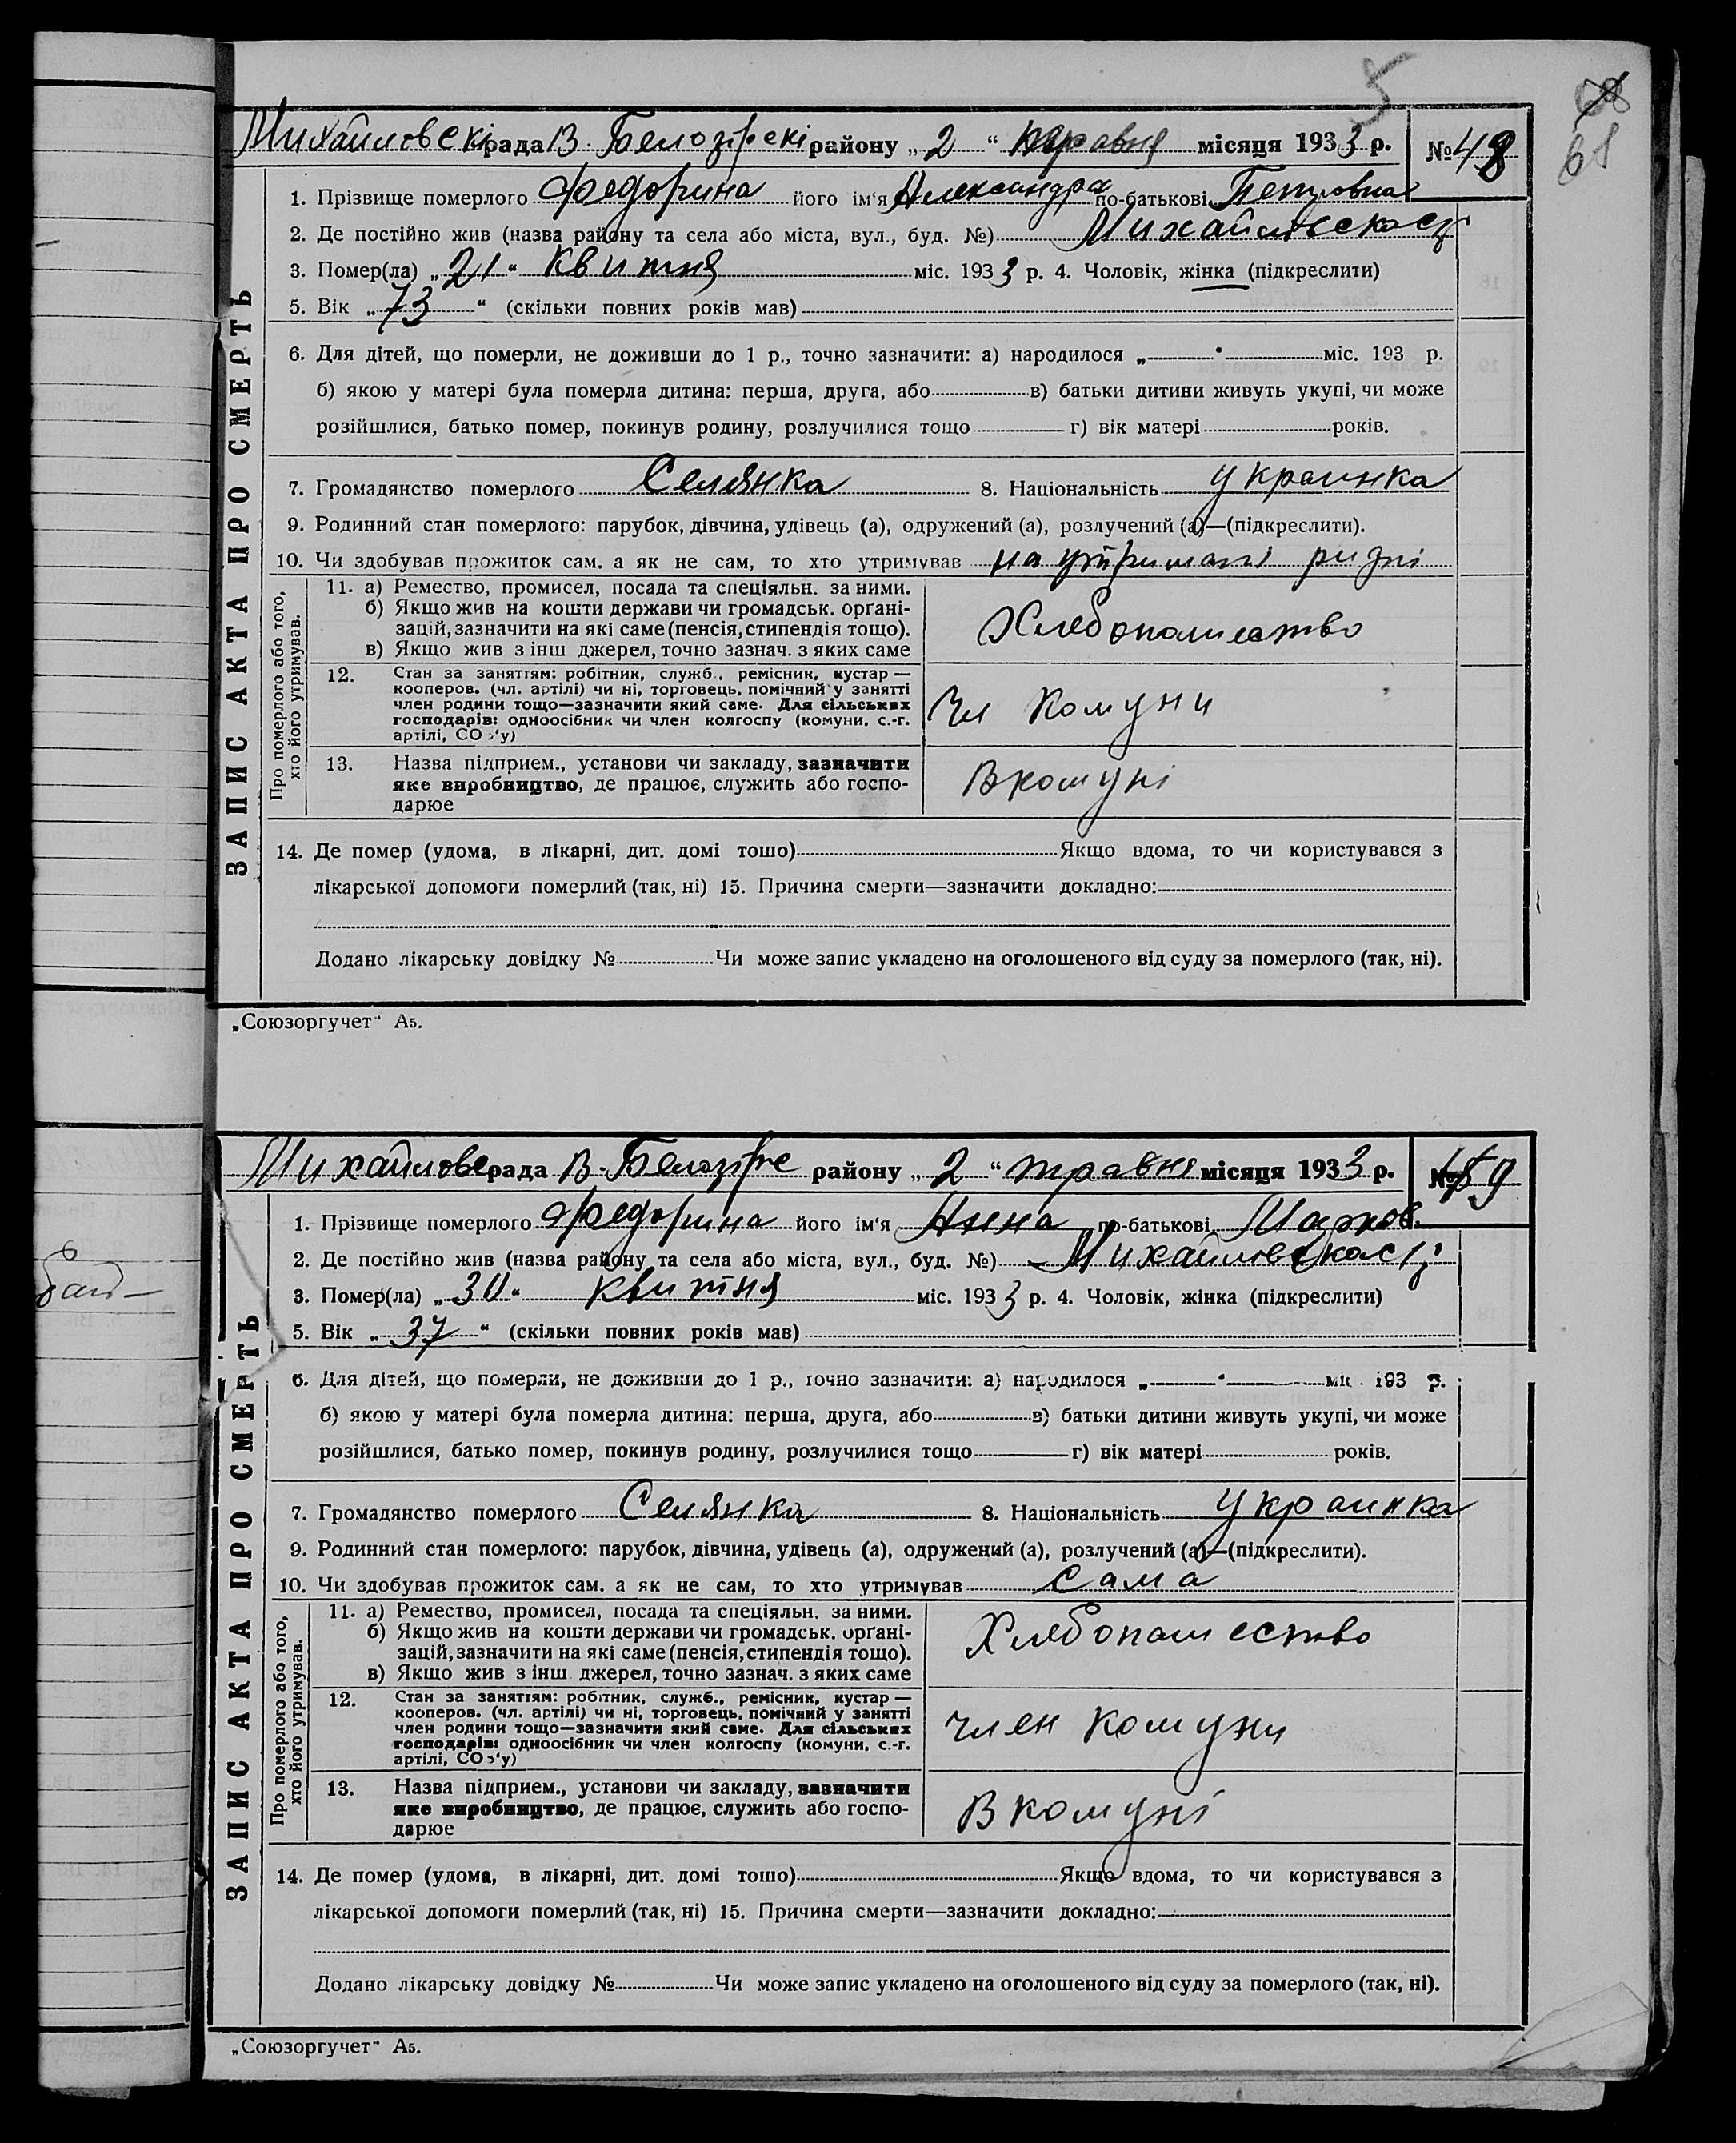 5
68
61
Михайловскі рада В. Белозірскі району „ 2 “ травня місяця 1933 р. № 48
1. Прізвище померлого Федорина його ім'я Александра по-батькові Петровна
2. Де постійно жив (назва району та села або міста, вул., буд. №)
3. Помер(ла) „ 21 “ квитня міс. 1933 р. 4. Чоловік, жінка (підкреслити)
5. Вік „ 73 “ (скільки повних років мав)
6. Для дітей, що померли, не доживши до 1 р., точно зазначити: а) народилося „ “ міс. 193 р.
б) якою у матері була померла дитина: перша, друга, або в) батьки дитини живуть укупі, чи може
розійшлися, батько помер, покинув родину, розлучилися тощо г) вік матері років.
7. Громадянство померлого Селянка 8. Національність украинка
9. Родинний стан померлого: парубок, дівчина, удівець (а), одружений (а), розлучений (а)—(підкреслити).
10. Чи здобував прожиток сам. а як не сам, то хто утримував на
ЗАПИС АКТА ПРО СМЕРТЬ
Про померлого або того,
хто його утримував.
11. а) Ремество, промисел, посада та спеціяльн. за ними.
б) Якщо жив на кошти держави чи громадськ. орґані-
зацій, зазначити на які саме (пенсія, стипендія тощо).
в) Якщо жив з інш джерел, точно зазнач. з яких саме
Хлебопашество
12. Стан за заняттям: робітник, служб., ремісник, кустар —
кооперов. (чл. артілі) чи ні, торговець, помічний у занятті
член родини тощо—зазначити який саме. Для сільських
господарів: одноосібник чи член колгоспу (комуни, с.-г.
артілі, СОз'у)
Чл комуни
13. Назва підприєм., установи чи закладу, зазначити
яке виробництво, де працює, служить або госпо-
дарює
В комуні
14. Де помер (удома, в лікарні, дит. домі тошо) Якщо вдома, то чи користувався з
лікарської допомоги померлий (так, ні) 15. Причина смерти—зазначити докладно:
Додано лікарську довідку № Чи може запис укладено на оголошеного від суду за померлого (так, ні).
„Союзоргучет“ А5.
Михайловс рада В. Белозірс району „ 2 “ травня місяця 1933 р. №
1. Прізвище померлого Федорина його ім'я Анна по-батькові Марков.
2. Де постійно жив (назва району та села або міста, вул., буд. №)
3. Помер(ла) „ 30 “ квитня міс. 1933 р. 4. Чоловік, жінка (підкреслити)
5. Вік „ 37 “ (скільки повних років мав)
6. Для дітей, що померли, не доживши до 1 р., точно зазначити: а) народилося „ “ міс. 193 р.
б) якою у матері була померла дитина: перша, друга, або в) батьки дитини живуть укупі, чи може
розійшлися, батько помер, покинув родину, розлучилися тощо г) вік матері років.
7. Громадянство померлого Селянка 8. Національність украинка
9. Родинний стан померлого: парубок, дівчина, удівець (а), одружений (а), розлучений (а)—(підкреслити).
10. Чи здобував прожиток сам. а як не сам, то хто утримував сама
ЗАПИС АКТА ПРО СМЕРТЬ
Про померлого або того,
хто його утримував.
11. а) Ремество, промисел, посада та спеціяльн. за ними.
б) Якщо жив на кошти держави чи громадськ. орґані-
зацій, зазначити на які саме (пенсія, стипендія тощо).
в) Якщо жив з інш. джерел, точно зазнач. з яких саме
Хлебопашество
12. Стан за заняттям: робітник, служб., ремісник, кустар —
кооперов. (чл. артілі) чи ні, торговець, помічний у занятті
член родини тощо—зазначити який саме. Для сільських
господарів: одноосібник чи член колгоспу (комуни, с.-г.
артілі, СОз'у)
член комуни
13. Назва підприєм., установи чи закладу, зазначити
яке виробництво, де працює, служить або госпо-
дарює
В комуні
14. Де помер (удома, в лікарні, дит. домі тошо) Якщо вдома, то чи користувався з
лікарської допомоги померлий (так, ні) 15. Причина смерти—зазначити докладно:
Додано лікарську довідку № Чи може запис укладено на оголошеного від суду за померлого (так, ні).
„Союзоргучет“ А5.